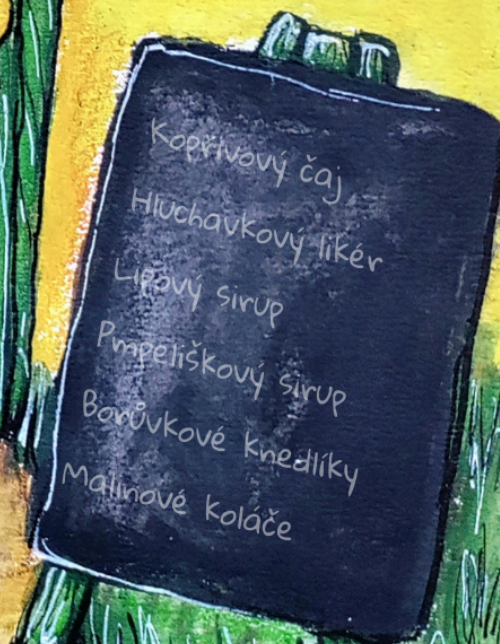 Kopřivový čaj
Hluchavkový likér
Lipový sirup
Pmpeliškový sirup
Borůvkové knedlíky
Malinové koláče